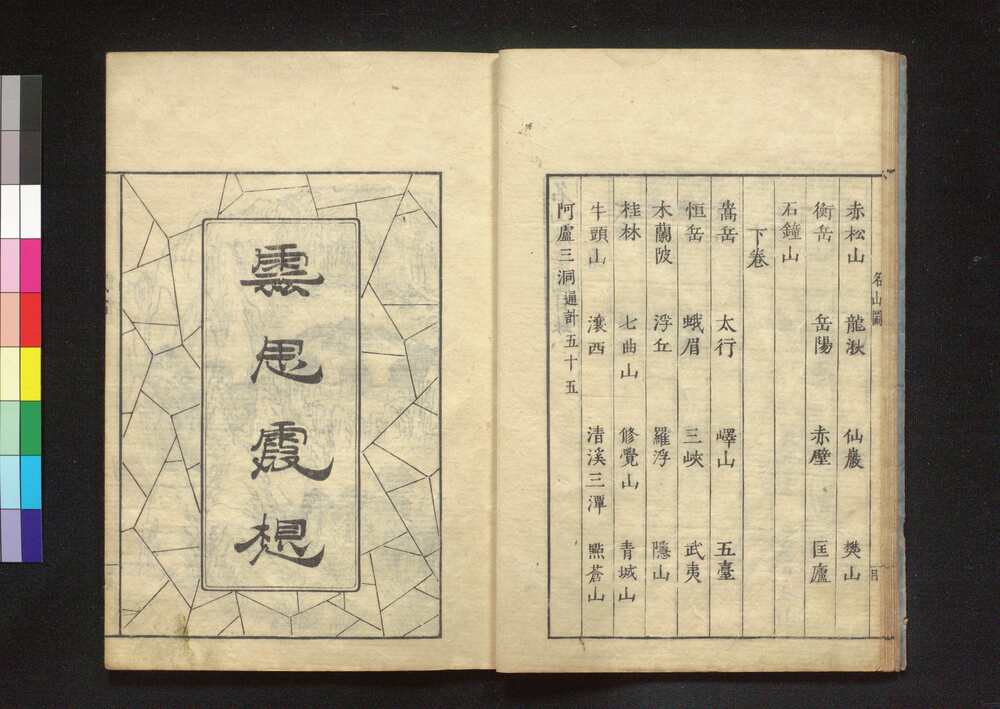 名山圖
赤松山 龍湫 仙巖 樊山
衡岳 岳陽 赤壁 匡廬
石鐘山
下卷
嵩岳 太行 嶧山 五臺
恒岳 蛾眉 三峽 武夷
木蘭陂 浮丘 羅浮 隱山
桂林 七曲山 修覺山 青城山
牛頭山 瀼西 清溪三潭 㸃蒼山
阿盧三洞 通計五十五
雲思霞想